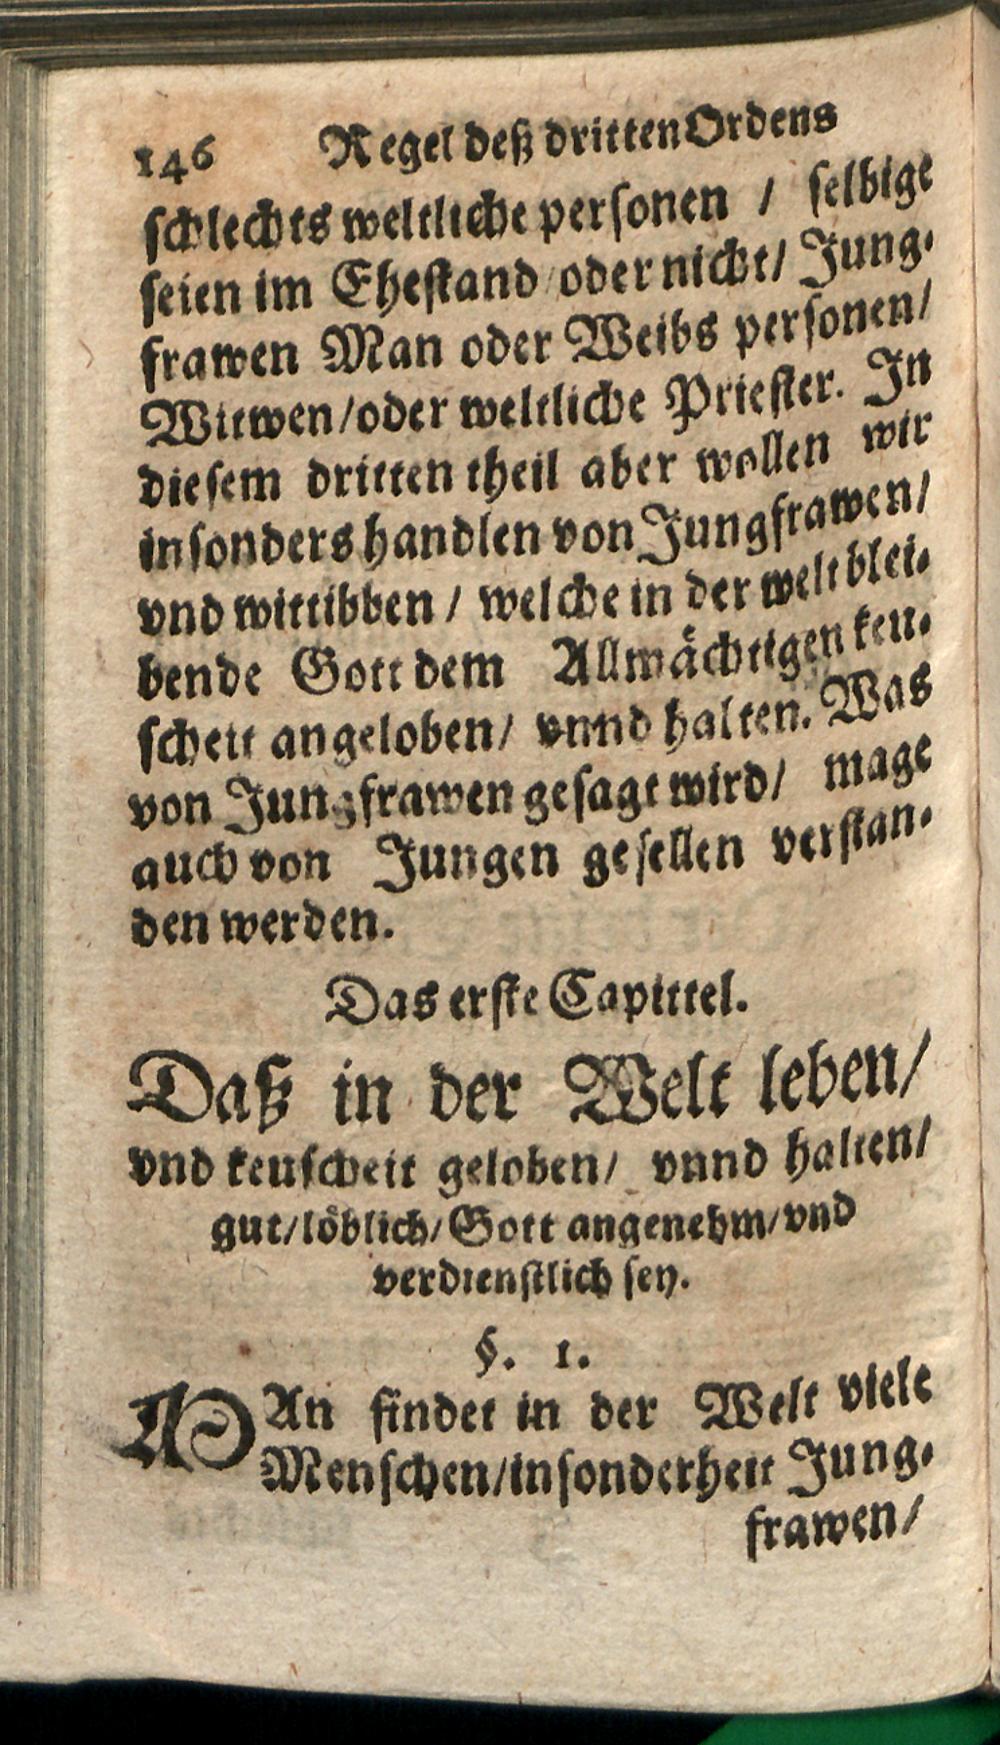 146 Regel deß dritten Ordens
schlechts weltliche personen / selbige
seien im Ehestand / oder nicht / Jung-
frawen Man oder Weibs personen /
Witwen / oder weltliche Priester. In
diesem dritten theil aber wollen wir
insonders handlen von Jungfrawen /
vnd wittibben / welche in der welt blei-
bende Gott dem Allmächtigen keu-
scheit angeloben / vnnd halten. Was
von Jungfrawen gesagt wird / mage
auch von Jungen gesellen verstan-
den werden.
Das erste Capittel.
Daß in der Welt leben /
vnd keuscheit geloben / vnnd halten /
gut / löblich / Gott angenehm / vnd
verdienstlich sey.
§. 1.
MAn findet in der Welt viele
Menschen / insonderheit Jung-
frawen /